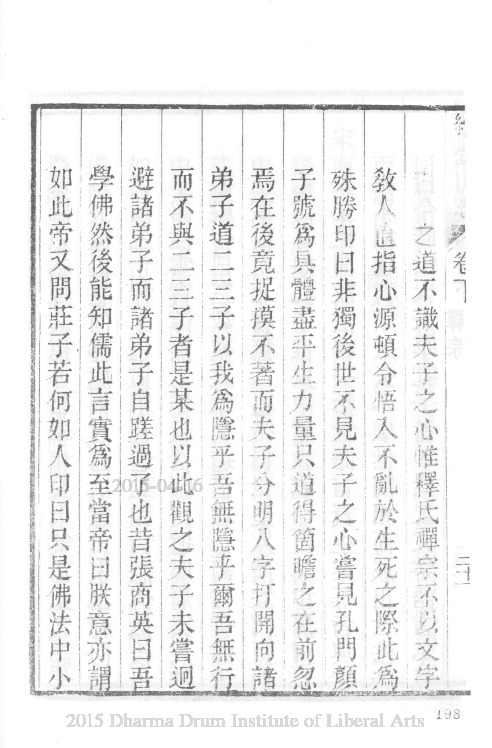 之道不識夫子之心惟釋氏禪宗不以文字
敎人直指心源頓令悟入不亂於生死之際此爲
殊勝印曰非獨後世不見夫子之心嘗見孔門顏
子號爲具體盡平生力量只道得箇瞻之在前忽
焉在後竟捉摸不著而夫子分明八字打開向諸
弟子道二三子以我爲隱乎吾無隱乎爾吾無行
而不與二三子者是某也以此觀之夫子未嘗迴
避諸弟子而諸弟子自蹉過了也昔張商英曰吾
學佛然後能知儒此言實爲至當帝曰朕意亦謂
如此帝又問莊子若何如人印曰只是佛法中小
卷下
198
2015 Dharma Drum Institute of Liberal Arts